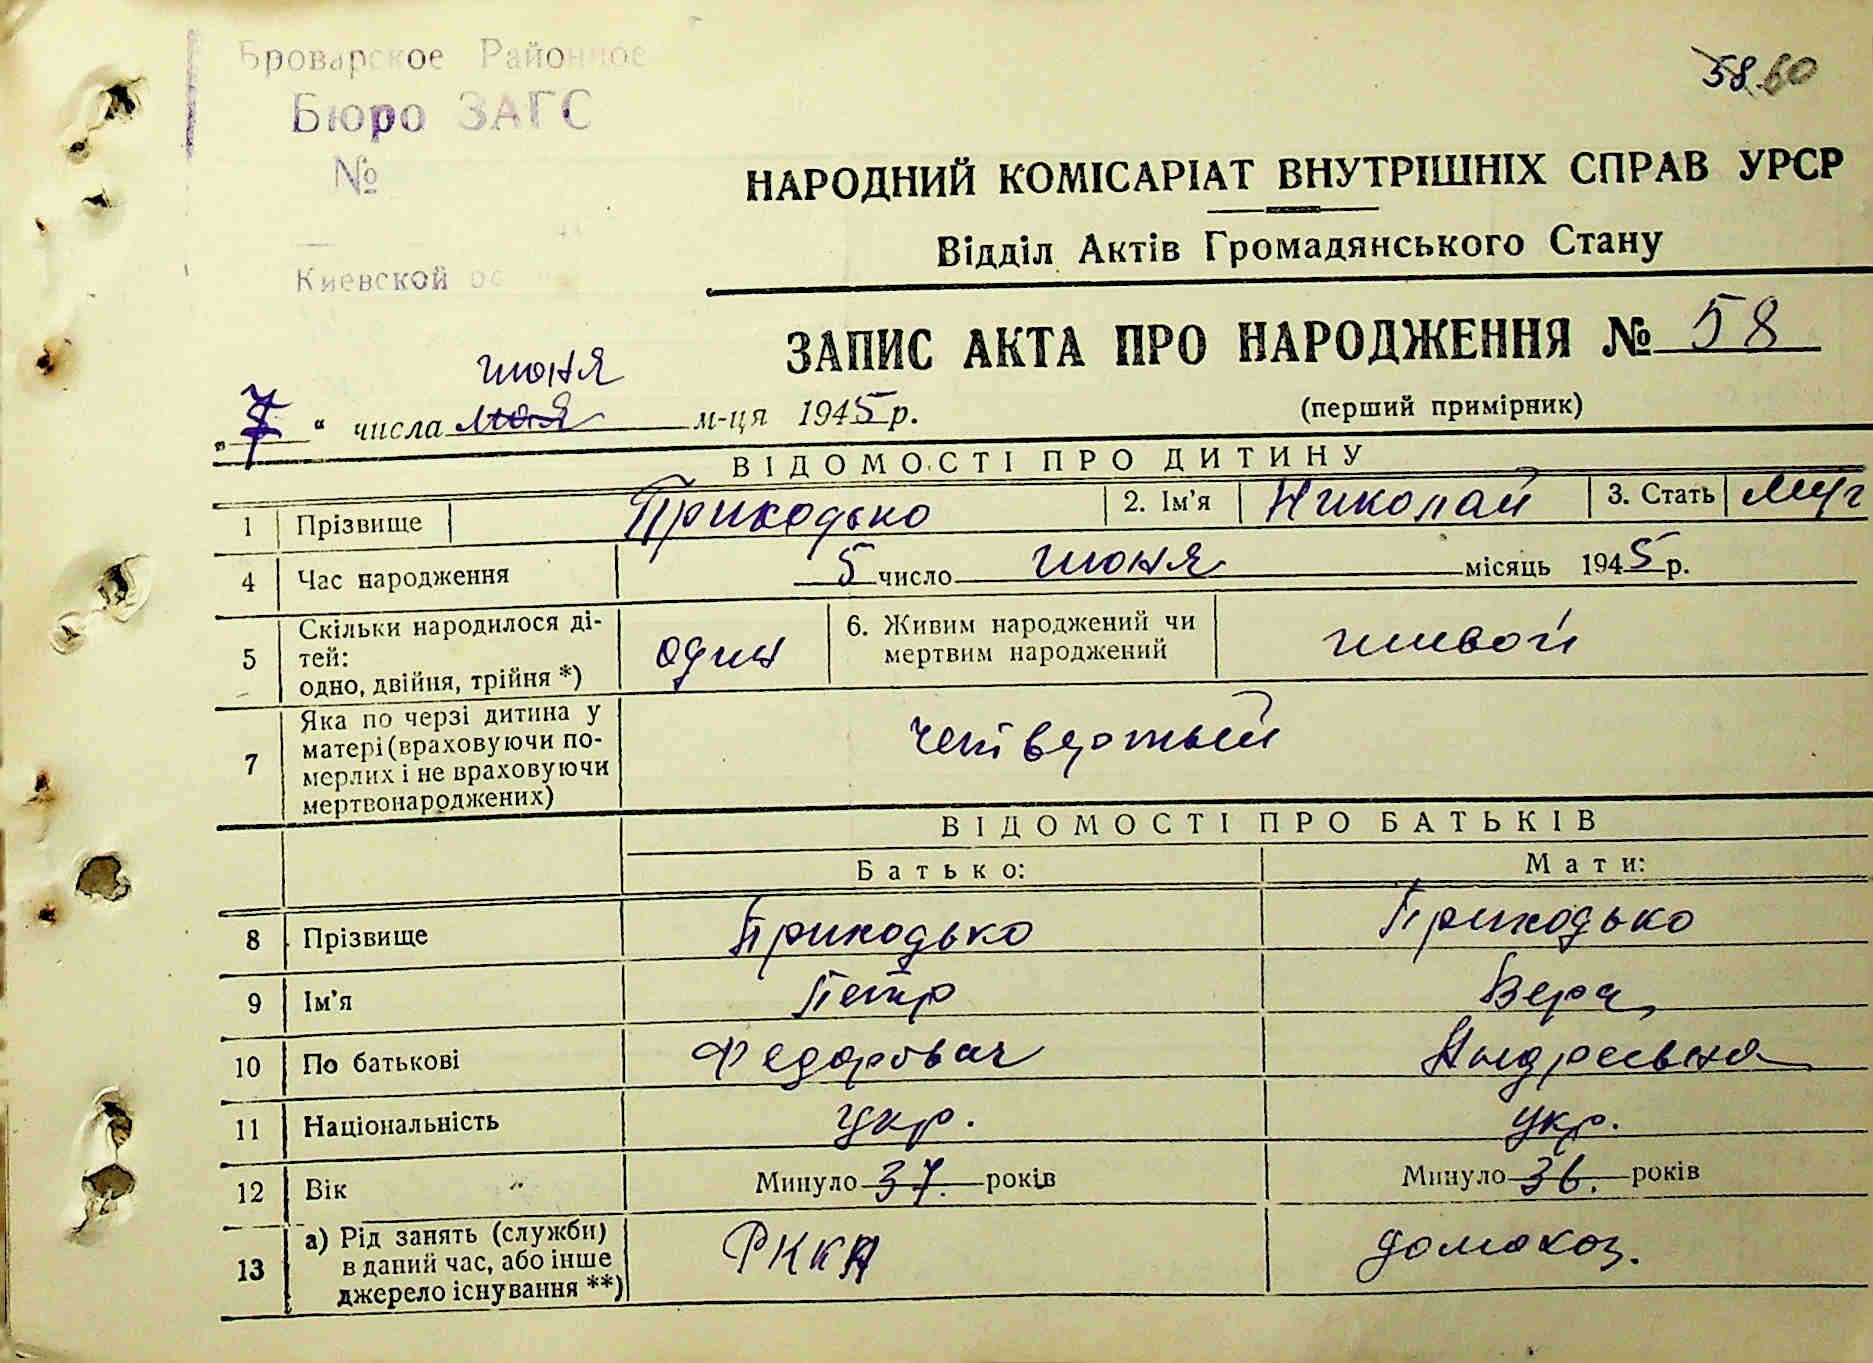 Броварское Районное
Бюро ЗАГС
№
Киевской
58 60
НАРОДНИЙ КОМІСАРІАТ ВНУТРІШНІХ СПРАВ УРСР
Відділ Актів Громадянського Стану
ЗАПИС АКТА ПРО НАРОДЖЕННЯ № 58
(перший примірник)
июня
„7“ числа мая м-ця 1945 р.
ВІДОМОСТІ ПРО ДИТИНУ
1 Прізвище Приходько 2. Ім'я Николай 3. Стать муж
4 Час народження 5 число июня місяць 1945 р.
5 Скільки народилося ді-
тей:
одно, двійня, трійня *) один 6. Живим народжений чи
мертвим народжений живой
7 Яка по черзі дитина у
матері (враховуючи по-
мерлих і не враховуючи
мертвонароджених) четвертый
ВІДОМОСТІ ПРО БАТЬКІВ
Батько: Мати:
8 Прізвище Приходько Приходько
9 Ім'я Петр Вера
10 По батькові Федорович Андреевна
11 Національність укр. укр.
12 Вік Минуло 37. років Минуло 36. років
13 а) Рід занять (служби)
в даний час, або інше
джерело існування **) РККА домохоз.